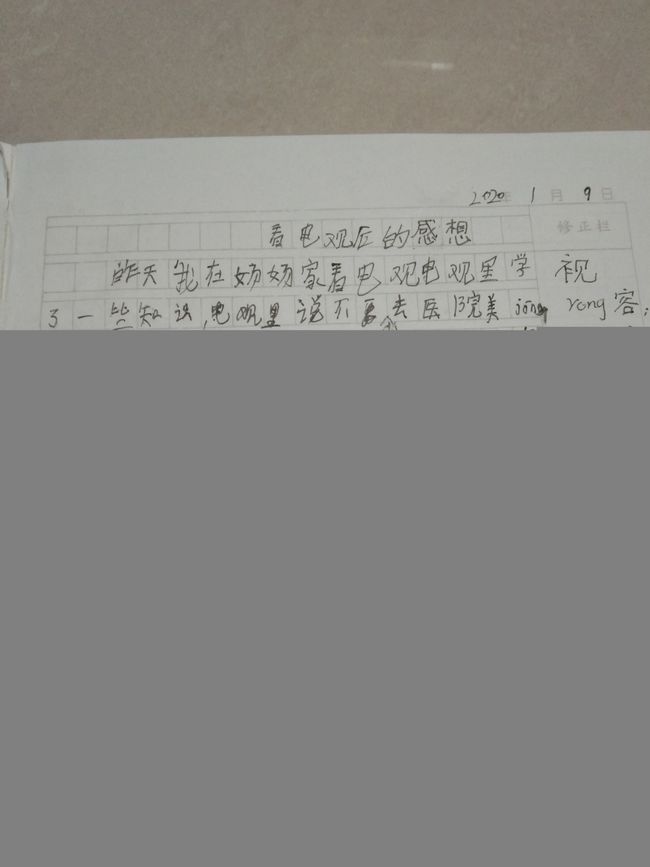 2020年 1月 9日
看电观后的感想
修正栏
昨天我在奶奶家看电观电观里学 视
3一些知识,电观里说不要去医 完美jóng róng容;